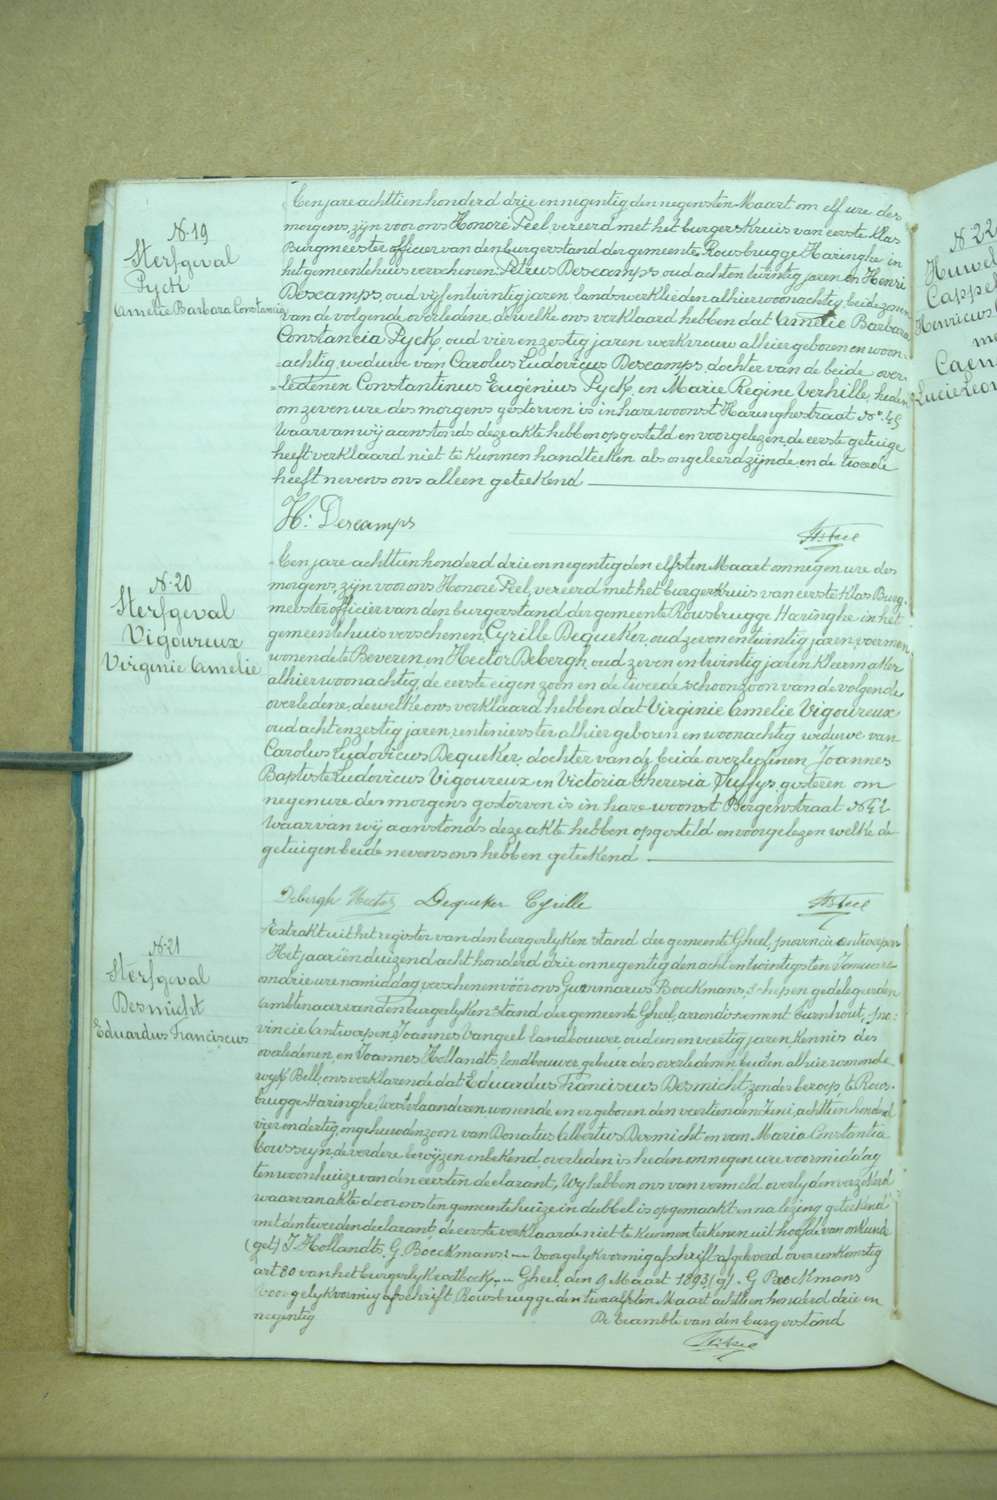 N. 19
Sterfgeval
Pyck
Amelie Barbara Constancia
Een jare achttien honderd drie en negentig den negensten Maart om elf ure des
morgens, zijn voor ons Honoré Peel, vereerd met het burgerskruis van eerste klas
Burgmeester officier van den burgerstand der gemeente Rousbrugge Haringhe in
het gemeentehuis verschenen Petrus Descamps, oud achten twintig jaren en Henri
Descamps, oud vijf en twintig jaren landswerklieden alhier woonachtig, beide zonen
van de volgende overledene, dewelke ons verklaard hebben dat Amelie Barbara
Constancia Pyck, oud vier en zestig jaren werkvrouw alhier geboren en woon-
achtig, weduwe van Carolus Ludovicus Descamps, dochter van de beide over-
ledenen Constantinus Eugenius Pyck, en Marie Regine Verhille, heden
om zeven ure des morgens gestorven is in hare woonst Haringhestraat No. 45
Waarvan wij aanstonds deze akte hebben opgesteld en voorgelezen, de eerste getuige
heeft verklaard niet te kunnen handteeken als ongeleerd zijnde, en de tweede
heeft nevens ons alleen geteekend
H. Descamps
H. Peel
N. 20
Sterfgeval
Vigoureux
Virginie Amelie
Een jare achttien honderd drie en negentig den elfsten Maart om negen ure des
morgens, zijn voor ons Honoré Peel, vereerd met het burgerskruis van eerste klas Burg-
meester officier van den burgerstand der gemeente Rousbrugge Haringhe in het
gemeentehuis verschenen, Cyrille Dequeker, oud zeven en twintig jaren, voerman,
wonende te Beveren en Hector Debergh, oud zeven en twintig jaren kleermaker
alhier woonachtig, de eerste eigen zoon en de tweede schoonzoon van de volgende
overledene, dewelke ons verklaard hebben dat Virginie Amelie Vigoureux
oud achten zestig jaren, rentenierster alhier geboren en woonachtig weduwe van
Carolus Ludovicus Dequeker, dochter van de beide overledenen Joannes
Baptiste Ludovicus Vigoureux en Victoria Theresia gisteren om
negen ure des morgens gestorven is in hare woonst Bergenstraat No
Waarvan wij aanstonds deze akte hebben opgesteld en voorgelezen welke de
getuigen beide nevens ons hebben geteekend
Debergh Hector Dequeker Cyrille
H. Peel
N. 21
Sterfgeval
Desmicht
Eduardus Franciscus
Extrakt uit het register van den burgerlyken stand der gemeente Gheel, provincie Antwerpen
Het jaar één duizend acht honderd drie en negentig den acht en twintigsten Januari
om drie ure namiddag verschenen vóór ons Gummarus Boeckmans, Schepen gedelegeerden
ambtenaar van den burgerlyken stand der gemeente Gheel, arrondissement Turnhout, pro-
vincie Antwerpen, Joannes Vangeel landbouwer oud een en veertig jaren kennis des
overledenen, en Joannes Hollandts, landbouwer gebuur des overledenen beiden alhier wonende
wyk Bell, ons verklarende dat Eduardus Franciscus Desmicht, zonder beroep, te Rous-
brugge-Haringhe, Westvlaanderen wonende en er geboren den veertienden Juni, achttien honderd
vier en dertig, ongehuwden zoon van Donatus Albertus Desmicht en van Maria Constantia
de verdere bewyzen onbekend, overleden is heden om negen ure voormiddag
ten woonhuize van den eersten declarant, Wy hebben ons van vermeld overlyden verzekerd
waarvan akte door ons ten gemeentehuize in dubbel is opgemaakt en na lezing geteekend
met den tweeden declarant, de eerste verklaarde niet te kunnen teekenen uit hoofde van onkunde
(get) J. Hollandts. G. Boeckmans. Voor gelykvormig afschrift afgeleverd overeenkomstig
art 80 van het burgerlyk wetboek. Gheel, den 9 Maart 1893 (g). G. Boeckmans
Voor gelykvormig afschrift, Rousbrugge den twaalfsten Maart achttien honderd drie en
negentig De beambte van den burgerstand
H. Peel
N. 22
Huwel
Cappel
Henricus
me
Caen
Lucie Leon